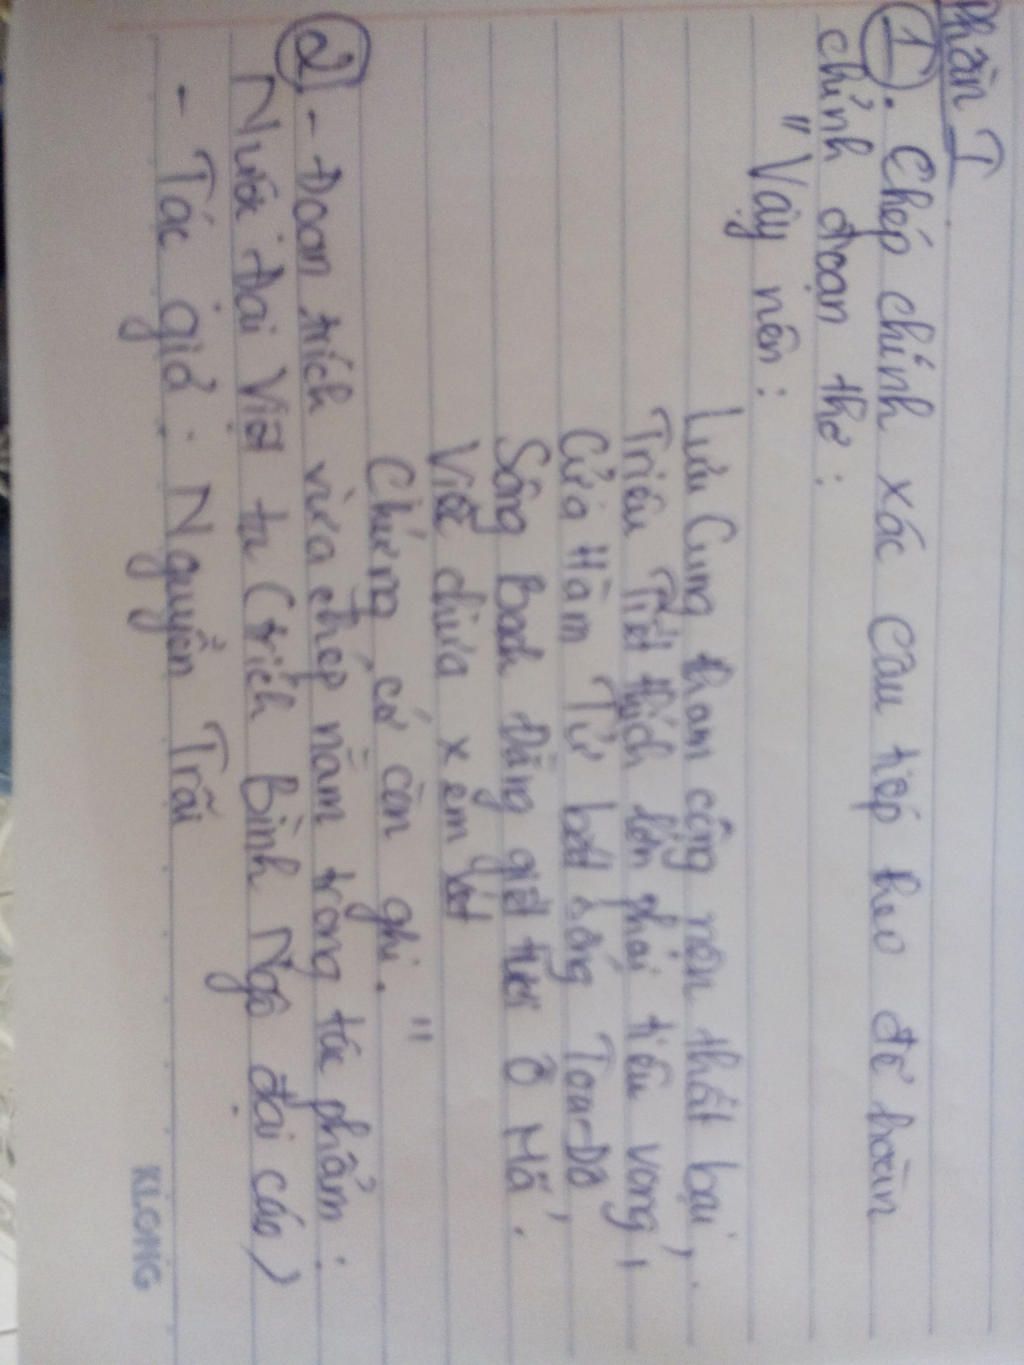 Phần I
①. Chép chính xác câu tiếp theo để hoàn
chỉnh đoạn thơ:
" Vậy nên:
Lưu Cung tham công nên thất bại,
Triệu Tiết thích lớn phải tiêu vong,
Cửa Hàm Tử bắt sống Toa Đô,
Sông Bạch Đằng giết tươi Ô Mã.
Việc chưa xem xét
Chứng cớ còn ghi. "
② - Đoạn trích vừa chép nằm trong tác phẩm:
Nước Đại Việt ta (trích Bình Ngô đại cáo)
- Tác giả: Nguyễn Trãi
KLONG